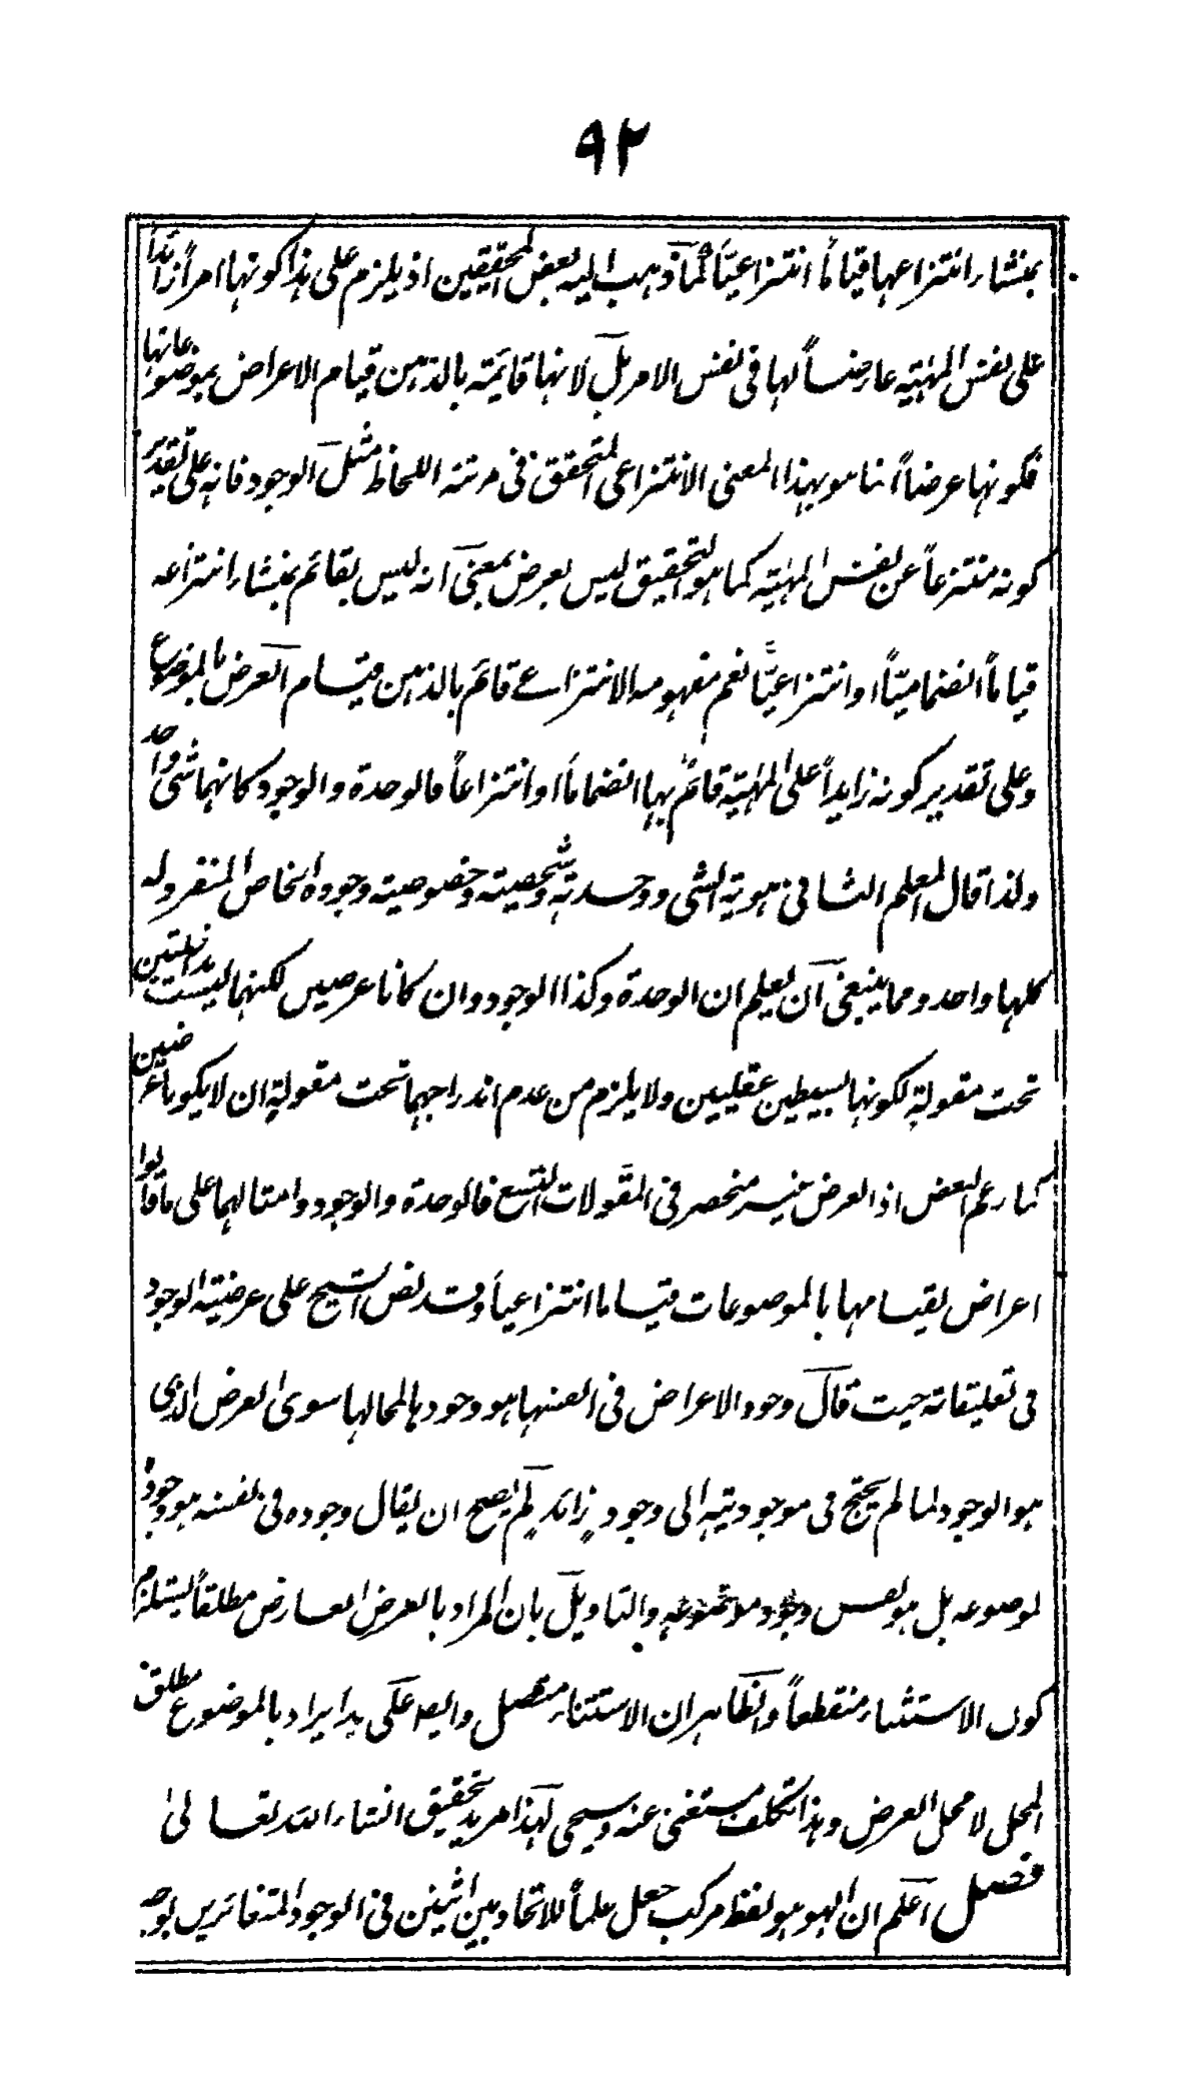 ٩٢
بمنشاء انتزاعها قياماً انتزاعياً كما ذهب اليه بعض المحققين اذ يلزم على هذا كونها امراً زائداً
على نفس المهية عارضاً لها فى نفس الامر بل لانها قائمة بالذهن قيام الاعراض بموضوعاتها
فكونها عرضاً انما هو بهذا المعنى الانتزاعى المتحقق فى مرتبة اللحاظ مثل الوجود فانه على تقدير
كونه منتزعاً عن نفس المهية كما هو التحقيق ليس بعرض بمعنى انه ليس بقائم بمنشاء انتزاعه
قياماً انضمامياً او انتزاعياً نعم مفهومه الانتزاعے قائم بالذهن قيام العرض بالموضوع
وعلى تقدير كونه زايداً على المهية قائم بها انضماماً او انتزاعاً فالوحدة والوجود كانهما شئ واحد
ولذا قال المعلم الثانى هوية الشى ووحدته وشخصيته وخصوصيته وجوده الخاص المنفرد له
كلها واحد ومما ينبغى ان يعلم ان الوحدة وكذا الوجود وان كانا عرضيين لكنهما ليستا بداخلتين
تحت مقولة لكونهما بسيطين عقليين ولا يلزم من عدم اندراجهما تحت مقولة ان لا يكونا عرضين
كما زعم البعض اذ العرض غير منحصر فى المقولات التسع فالوحدة والوجود وامثالهما على ما قالوا
اعراض لقيامها بالموضوعات قياما انتزاعياً وقد نص الشيخ على عرضية الوجود
فى تعليقاته حيث قال وجود الاعراض فى انفسها هو وجودها لمحالها سوى العرض الذى
هو الوجود لما لم يحتج فى موجوديته الى وجود زائد لم يصح ان يقال وجوده فى نفسه هو وجوده
لموضوعه بل هو نفس وجود موضوعه والتاويل بان المراد بالعرض العارض مطلقاً يستلزم
كون الاستثناء منقطعاً والظاهر ان الاستثناء متصل وايضا على هذا يراد بالموضوع مطلق
المحل لا محل العرض وهذا تكلف مستغنى عنه وسيجى لهذا مريد تحقيق انشاء الله تعالى
فصل اعلم ان الهو هو لفظ مركب جعل علماً للاتحاد بين اثنين فى الوجود المتغائرين بوجه